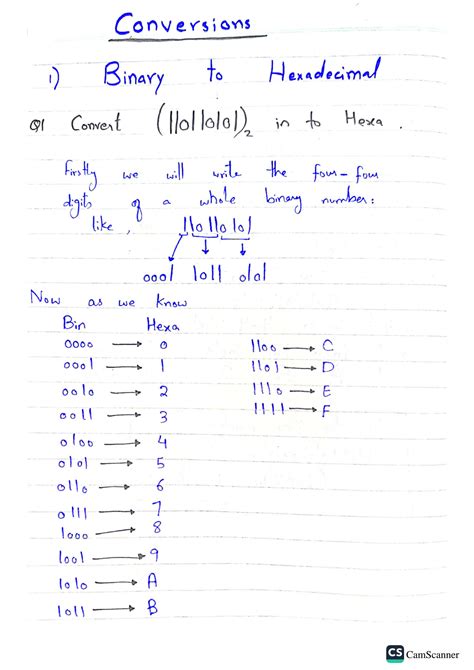 Conversions
1) Binary to Hexadecimal
Q1 Convert (110110101)₂ in to Hexa.
Firstly we will write the four-four
digits of a whole binary number:
like, 110110101
0001 1011 0101
Now as we know
Bin Hexa
0000 → 0
0001 → 1
0010 → 2
0011 → 3
0100 → 4
0101 → 5
0110 → 6
0111 → 7
1000 → 8
1001 → 9
1010 → A
1011 → B
1100 → C
1101 → D
1110 → E
1111 → F
CS CamScanner